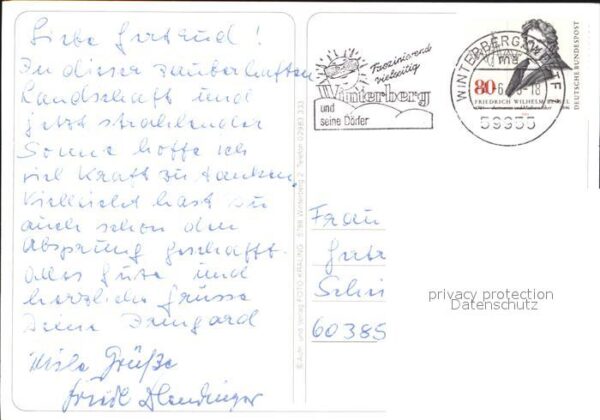 Liebe Gertrud!
In dieser zauberhaften
Landschaft und
jetzt strahlender
Sonne hoffe ich
viel Kraft zu tanken.
Vielleicht hast du
auch schon den
Absprung geschafft.
Alles Gute und
herzliche Grüsse
Deine Irmgard
Viele Grüße
Friedl
Faszinierend
vielseitig
Winterberg
und
seine Dörfer
WINTERBERG, WESTF
59955
80
FRIEDRICH WILHELM
DEUTSCHE BUNDESPOST
Frau
Gertr
Schü
60385
privacy protection
Datenschutz